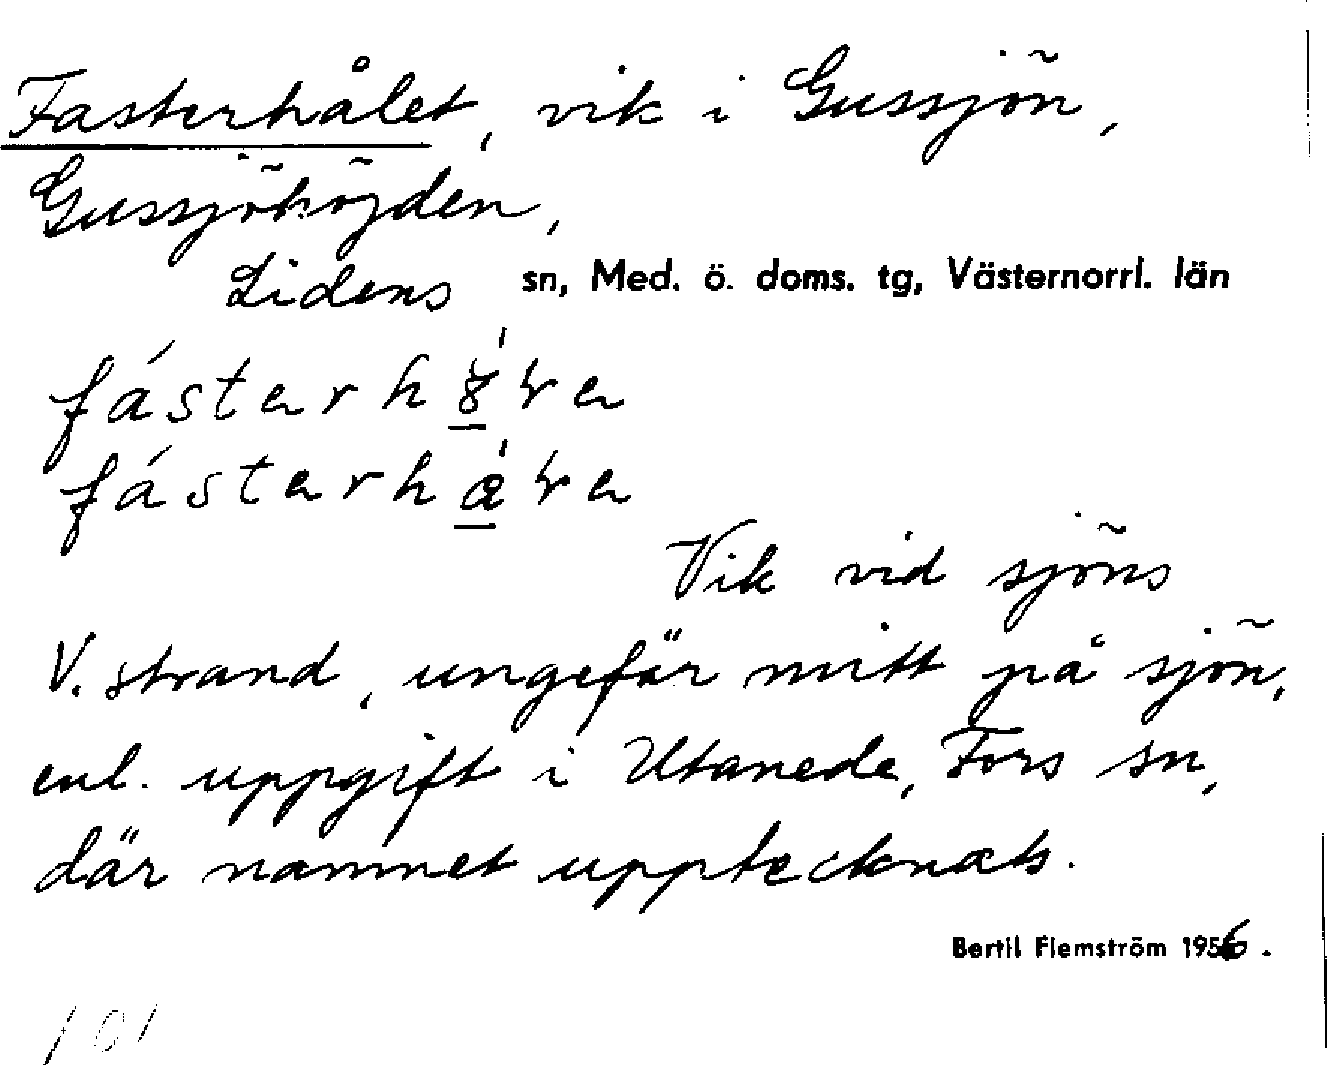 Fasterhålet, vik i Gussjön,
Gussjöhöjden,
Lidens sn, Med. ö. doms. tg, Västernorrl. län
Vik vid sjöns
V. strand, ungefär mitt på sjön,
enl. uppgift i Utanede, Fors sn,
där namnet upptecknats.
Bertil Flemström 1956.
101